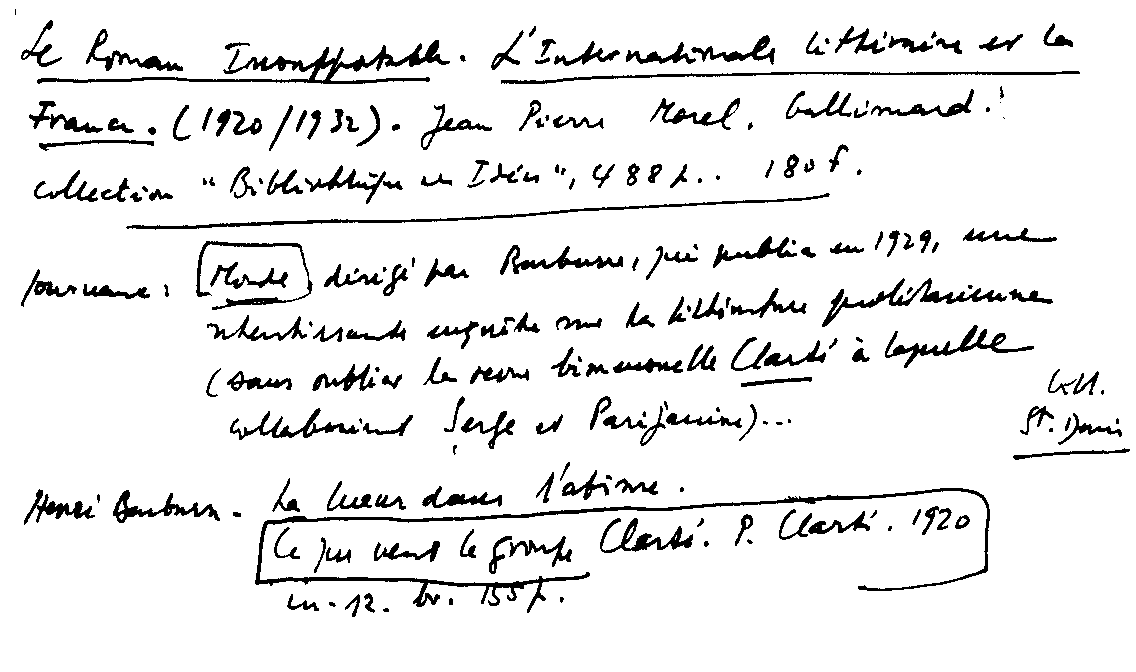 Le Roman Insupportable. L'Internationale littéraire et la
France. (1920/1932). Jean Pierre Morel. Gallimard.
collection "Bibliothèque des Idées", 488 p.. 180 f.
Journaux : Monde dirigé par Barbusse, qui publia en 1929, une
retentissante enquête sur la littérature prolétarienne
(sans oublier la revue bimensuelle Clarté à laquelle
collaboraient Serge et Parijanine)...
Coll.
St. Denis
Henri Barbusse - La lueur dans l'abîme.
Ce que veut le groupe Clarté. P. Clarté. 1920
in-12. br. 155 p.